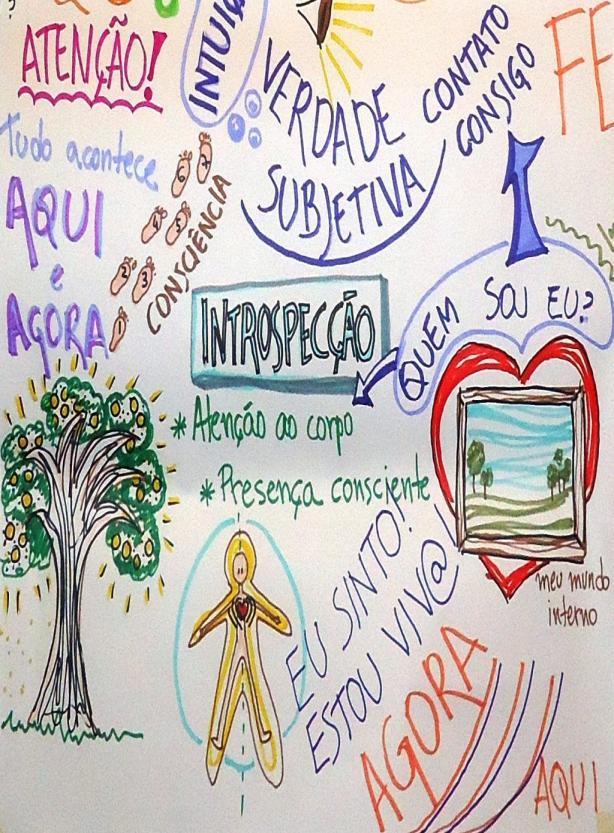 ATENÇÃO!
INTUIÇ
VERDADE
SUBJETIVA
CONTATO
CONSIGO
FE
Tudo acontece
AQUI
e
AGORA
1
2
3
4
5
6
7
CONSCIÊNCIA
INTROSPECÇÃO
QUEM SOU EU?
* Atenção ao corpo
* Presença consciente
EU SINTO!
ESTOU VIV@!
meu mundo
interno
AGORA
AQUI